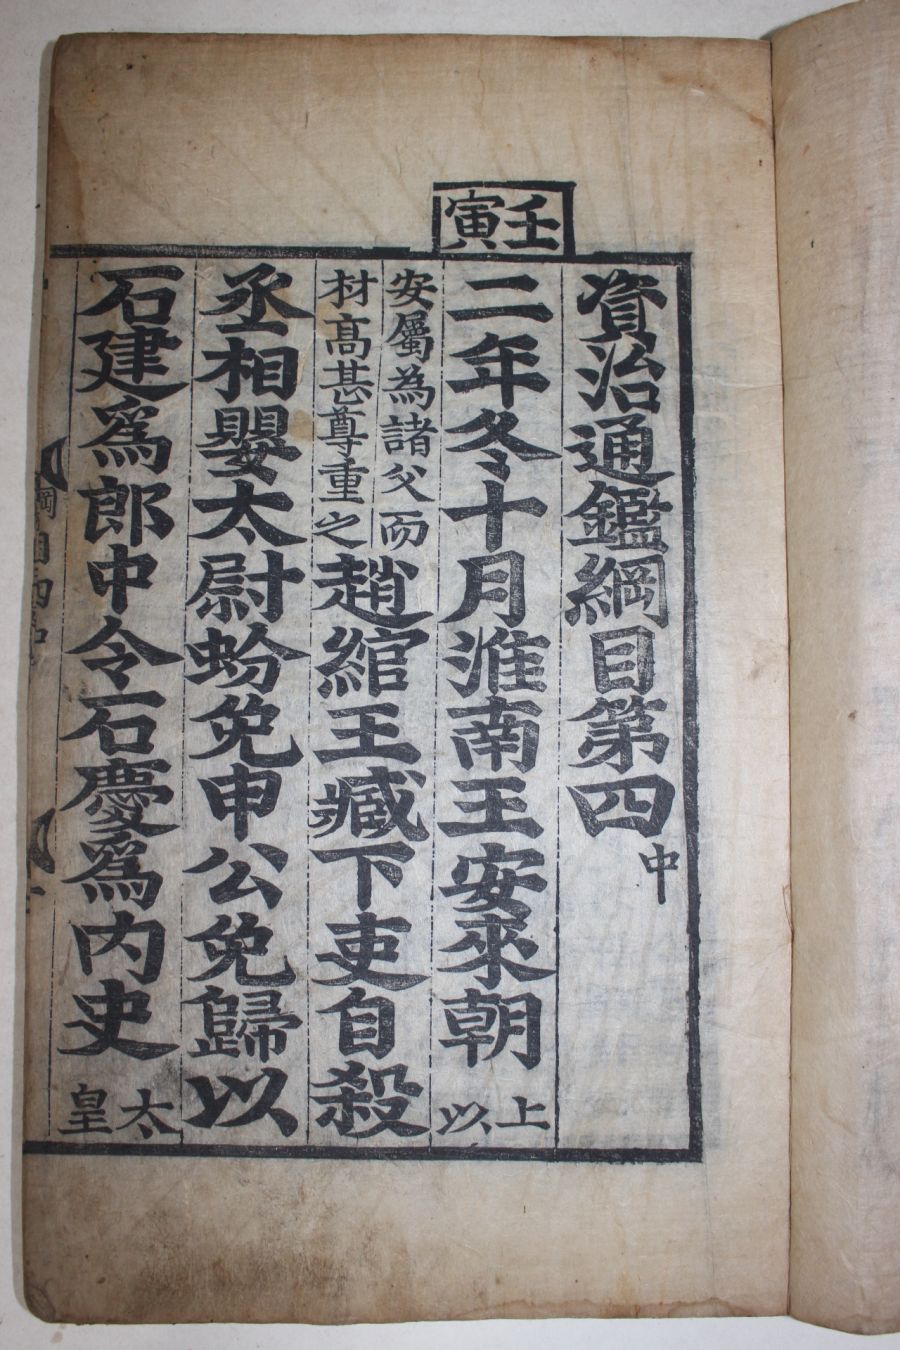 壬寅
資治通鑑綱目第四中
二年冬十月淮南王安來朝上以
安屬為諸父而
材高甚尊重之
趙綰王臧下吏自殺
丞相嬰太尉蚡免申公免歸以
石建爲郎中令石慶爲內史太皇